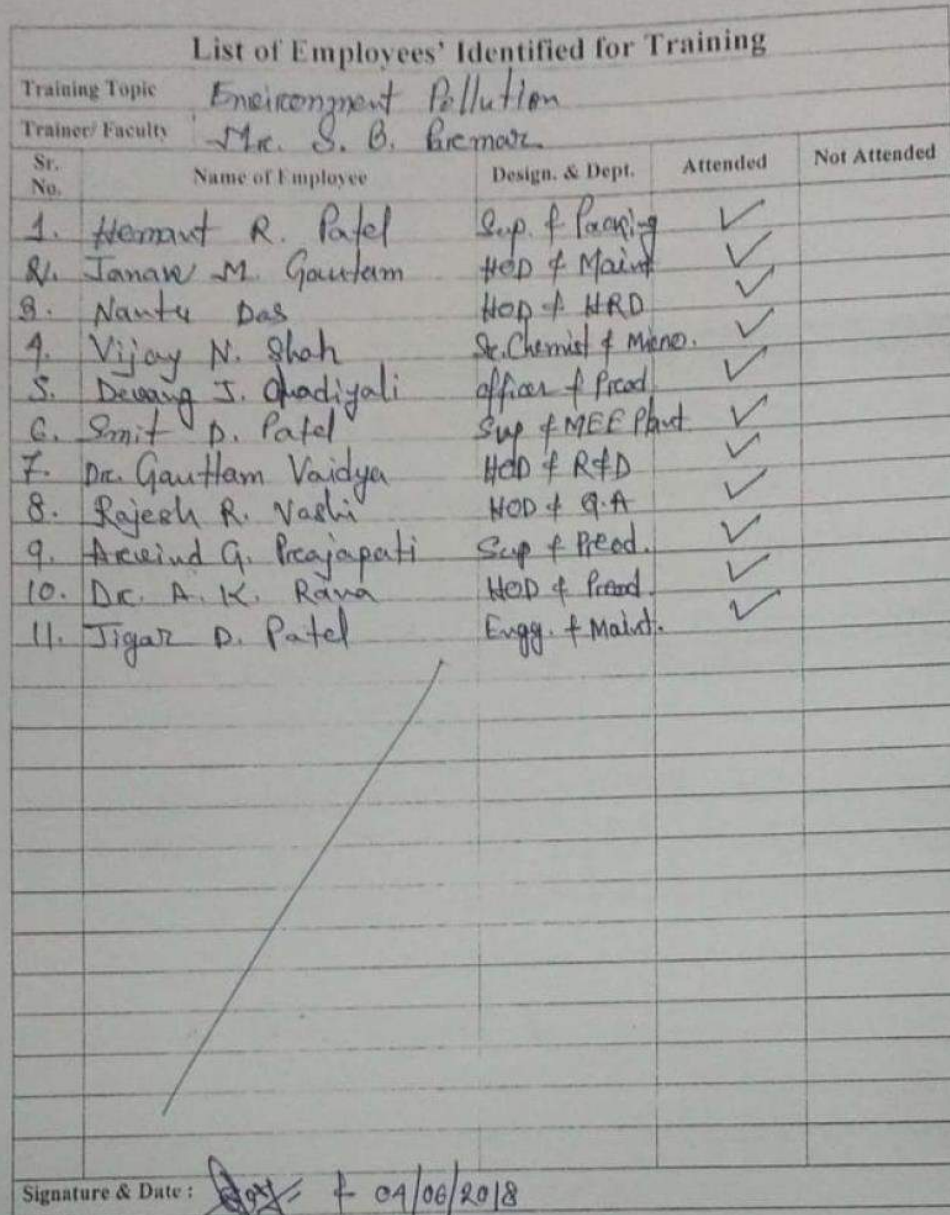 List of Employees' Identified for Training
Training Topic Environment Pollution
Trainer/ Faculty Mr. S. B. Parmar
Sr. No. Name of Employee Design. & Dept. Attended Not Attended
1. Hemant R. Patel Sup. & Packing ✓
2. Janak M. Gautam HOD & Maint ✓
3. Nantu Das HOD & HRD ✓
4. Vijay N. Shah Sr. Chemist & Micro. ✓
5. Devang J. Ghadiyali officer & Prod ✓
6. Smit D. Patel Sup & MEE Plant ✓
7. Dr. Gauttam Vaidya HOD & R&D ✓
8. Rajesh R. Vashi HOD & Q.A ✓
9. Arvind G. Prajapati Sup & Prod. ✓
10. Dr. A. K. Rana HOD & Prod. ✓
11. Jigar D. Patel Engg. & Maint. ✓
Signature & Date : & 04/06/2018